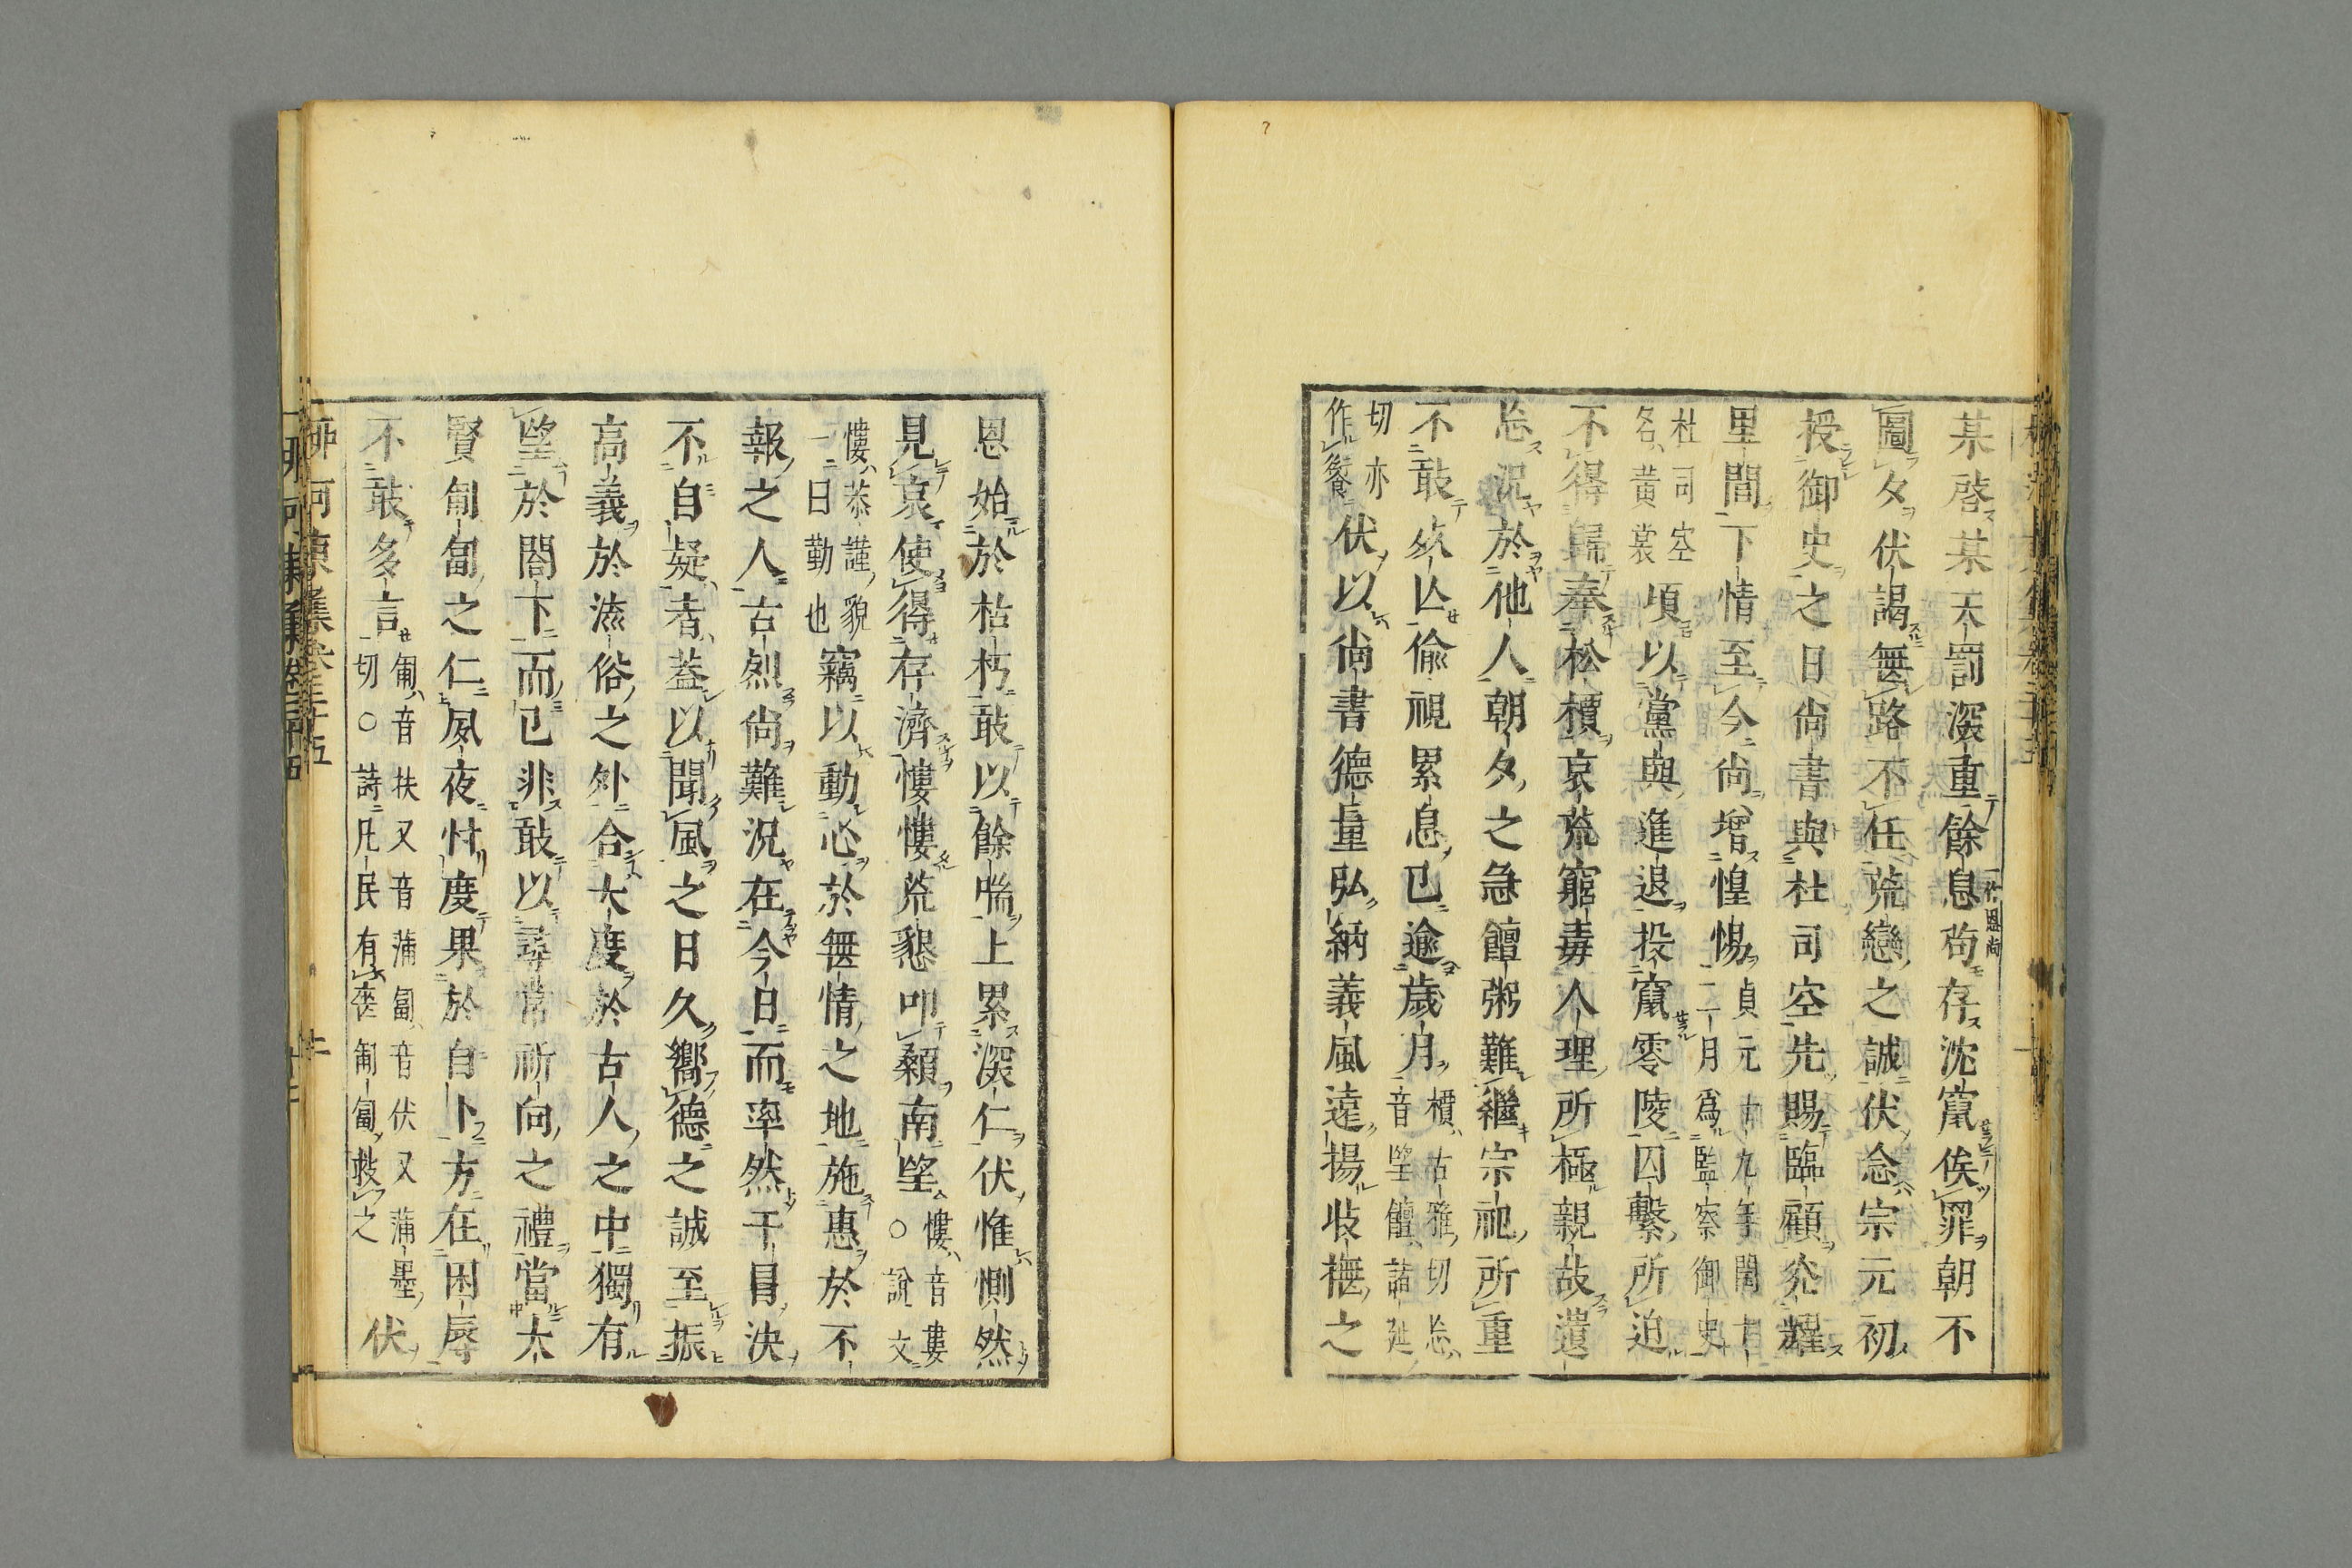 某啓某天罰深重餘息苟存沈竄俟罪朝不
一作恩尚
圖夕伏謁無路不任荒戀之誠伏念宗元初
授御史之日尚書與杜司空先賜臨顧光耀
里閭下情至今尚増惶惕貞元十九年閏十
二月爲監察御史
杜司空
名黄裳
頃以黨與進退投竄零陵囚繫所迫
不得歸奉松檟哀荒窮毒人理所極親故遺
忘況於他人朝夕之急饘粥難繼宗祀所重
不敢死亡偷視累息已逾歲月檟古雅切忘
音望饘諸延
切亦
作餐
伏以尚書德量弘納義風遠揚收撫之
恩始於枯朽敢以餘喘上累深仁伏惟惻然
見哀使得存濟慺慺荒懇叩顙南望慺音婁
○說文
慺恭謹貌
一曰勤也
竊以動心於無情之地施惠於不
報之人古烈尚難況在今日而率然干冒決
不自疑者蓋以聞風之日久嚮德之誠至振
高義於流俗之外合大度於古人之中獨有
望於閤下而已非敢以尋常祈向之禮當大
賢匍匐之仁夙夜忖度果於自卜方在困辱
不敢多言匍音扶又音蒲匐音伏又蒲墨
切○詩凡民有喪匍匐救之
伏
柳河東集卷三十五